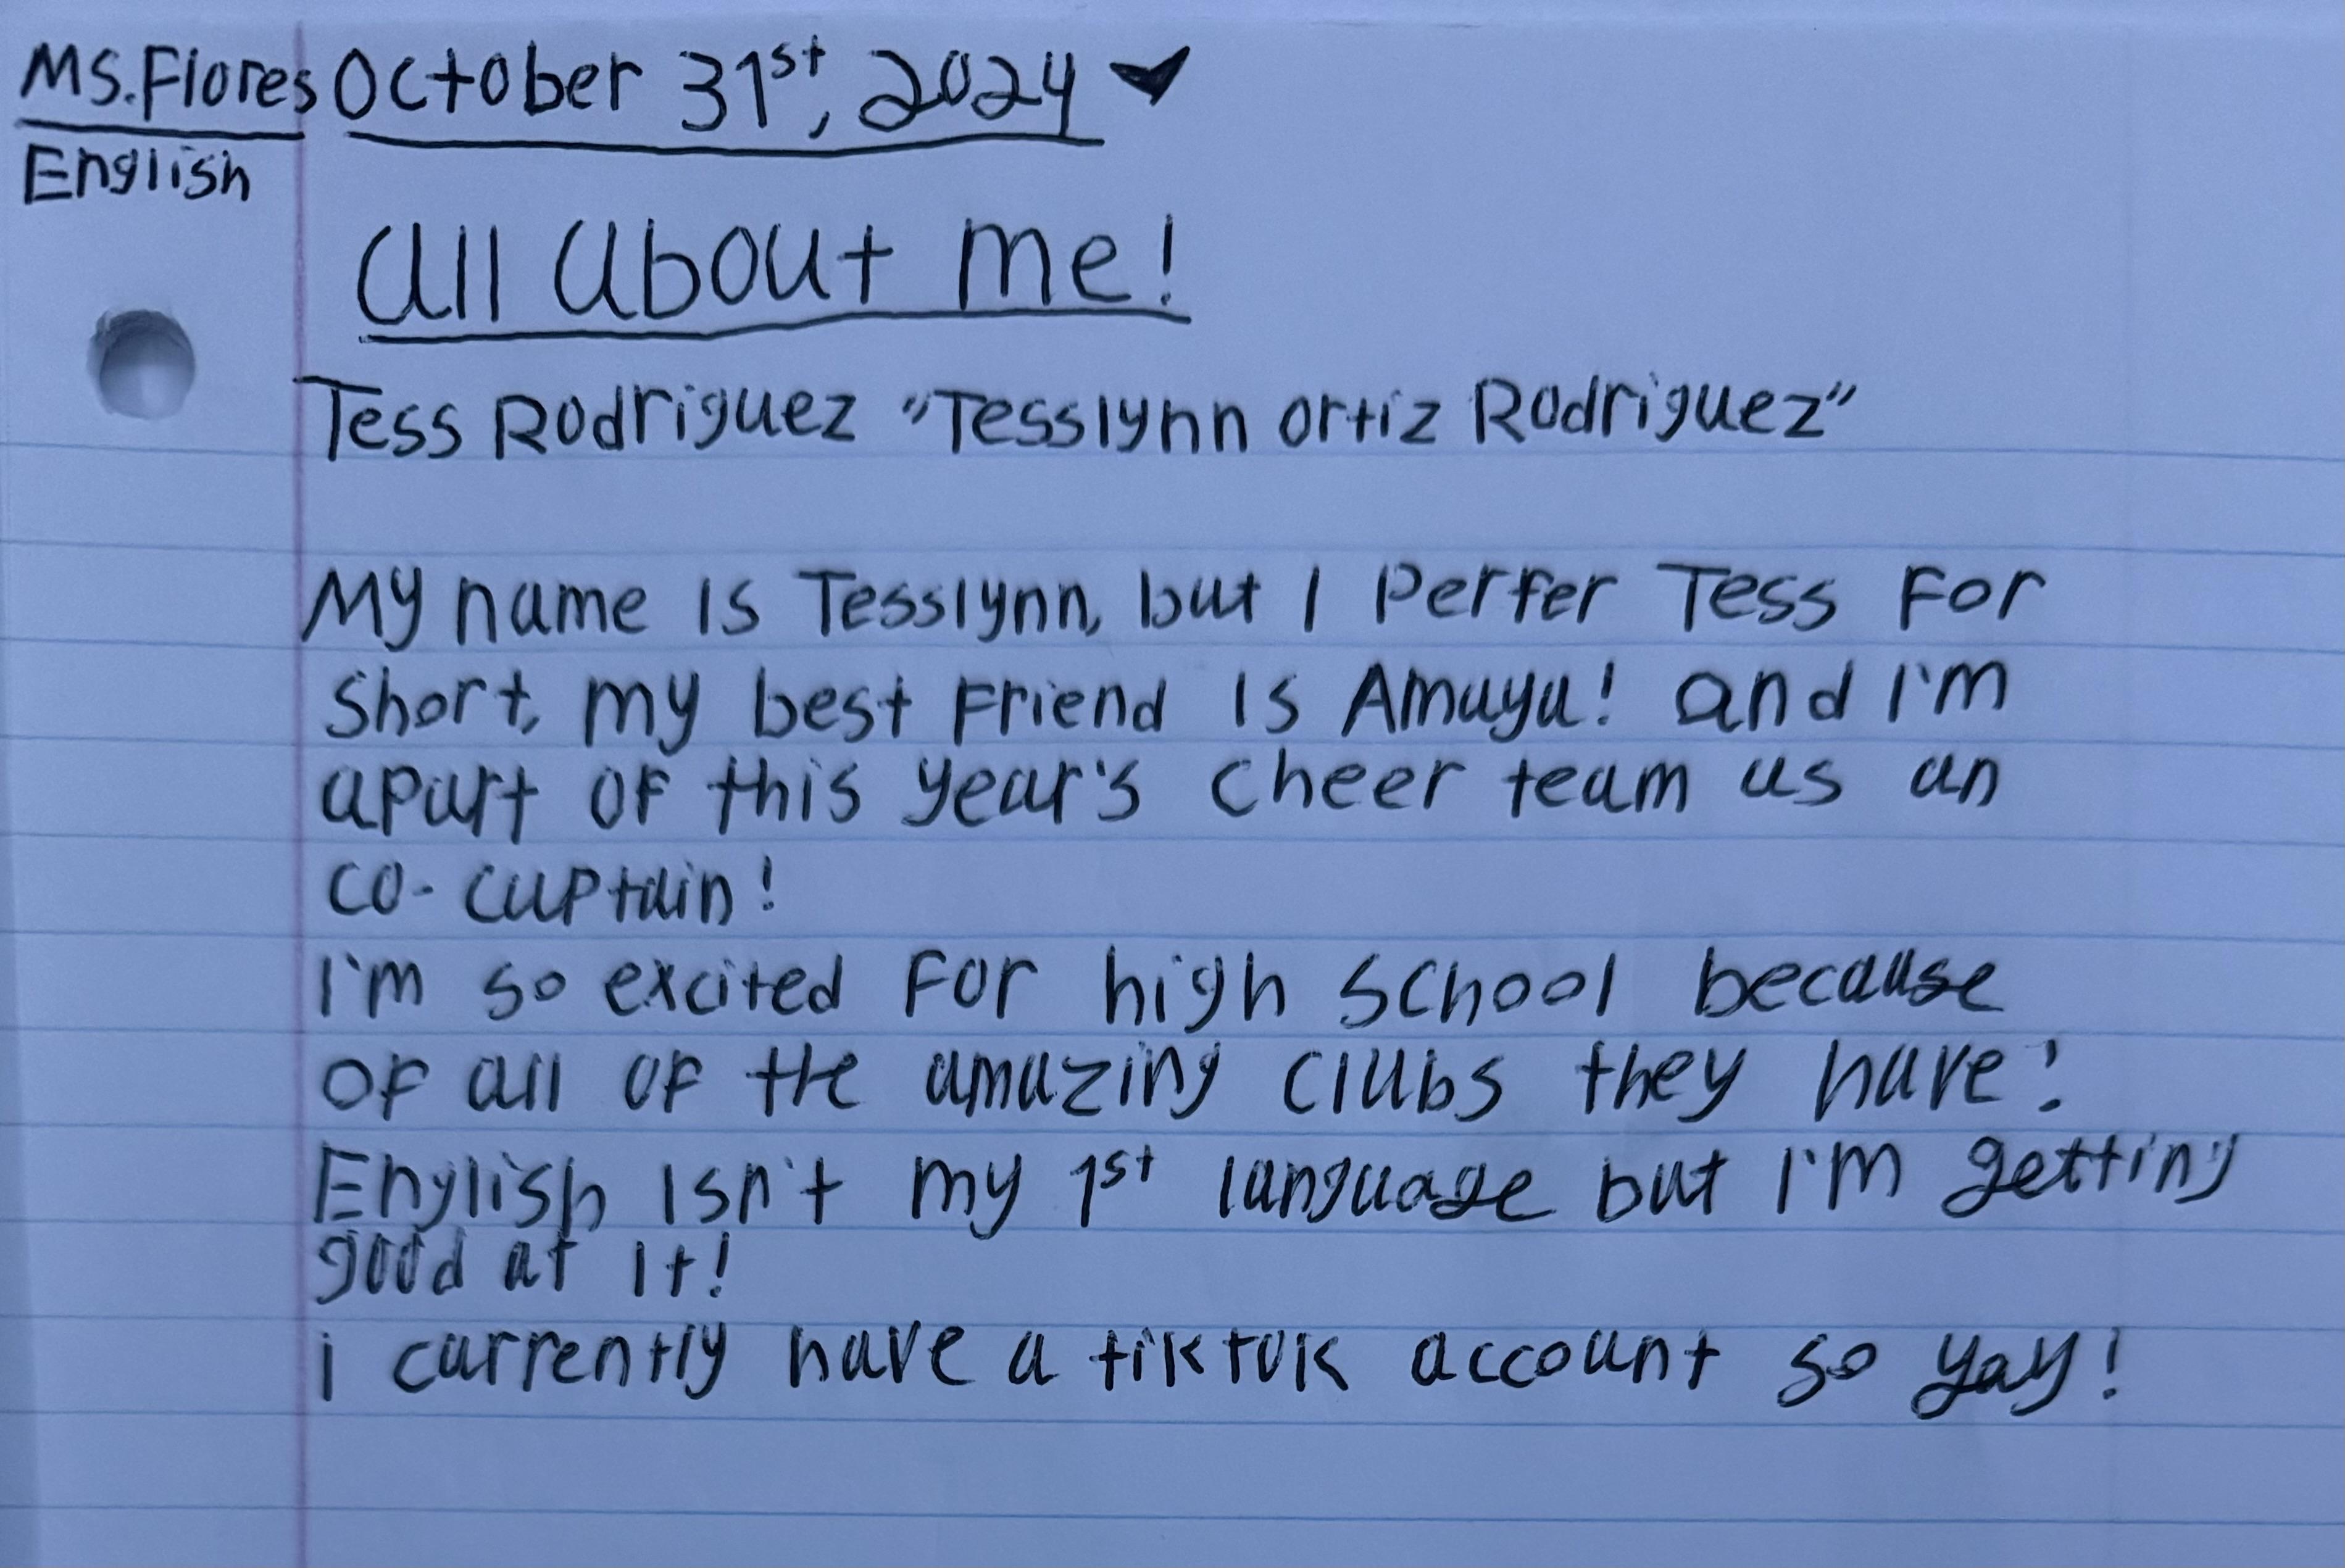 Ms.Flores October 31st, 2024
English
All about me!
Tess Rodriguez "Tesslynn ortiz Rodriguez"
My name is Tesslynn, but I Perfer Tess For
Short, my best Friend is Amaya! and I'm
apart of this year's cheer team as an
co-captain!
I'm so excited For high school because
of all of the amazing clubs they have!
English isn't my 1st language but I'm getting
good at it!
i currently have a tiktok account so yay!